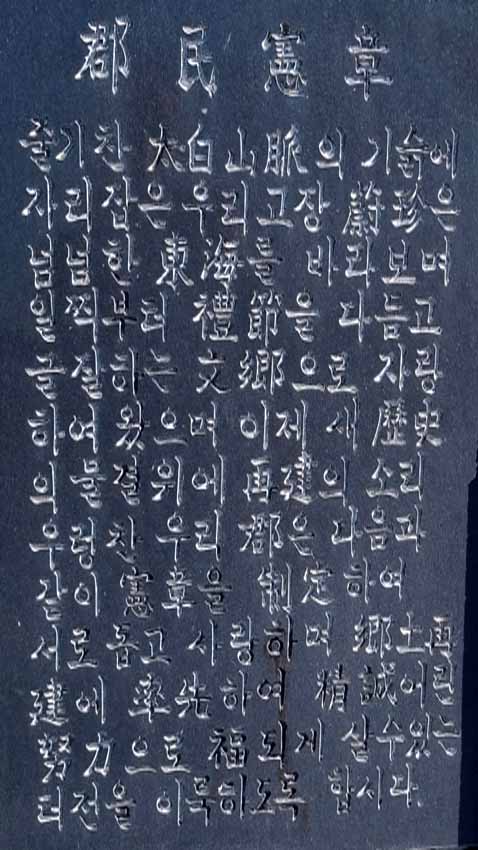 郡民憲章
줄기찬 大白山脈의 기슭에
자리잡은 우리고장 蔚珍은
넘넘한 東海를 바라보며
일찍부터 禮節을 다듬고
글잘하는 文鄕으로 자랑
하여 왔으며 이제 새 歷史
의 물결위에 再建의 소리
우렁찬 우리 郡은 다음과
같이 憲章을 制定하여
서로 돕고 사랑하며 鄕土再
建에 率先하여 精誠어린
努力으로 福되게 살수있는
터전을 이룩하도록 합시다.